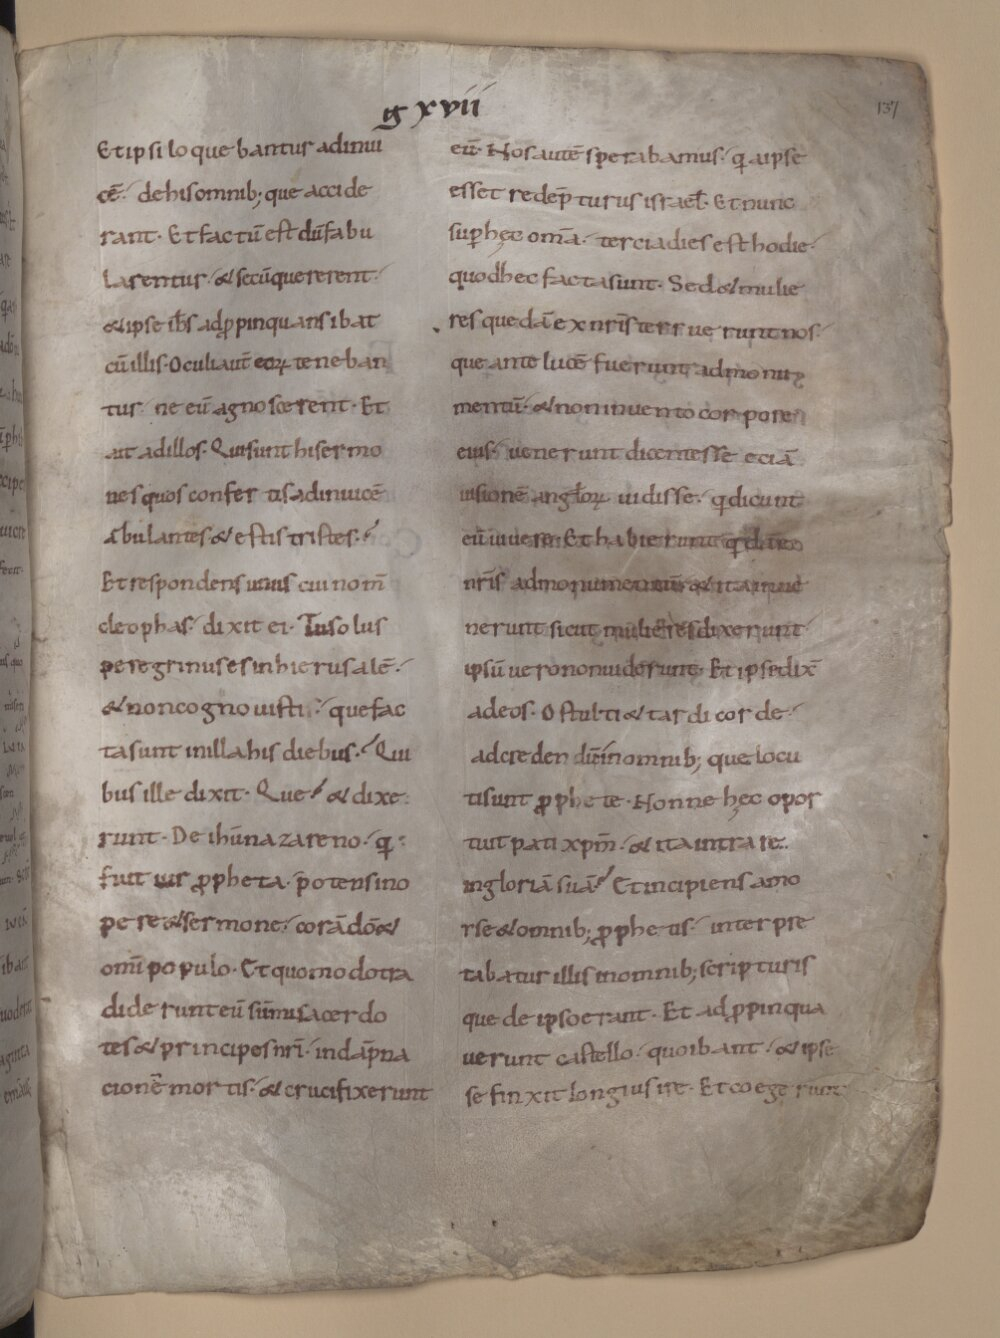 g xvii
137
Et ipsi loquebantur adinui
cē· de his omnib; que accide
rant· Et factū est dū fabu
larentur· & secū quererent·
& ipse ih̄s adp̱pinquans ibat
cū illis· Oculi aut̄ eoꝝ teneban
tur ne eū agnoscerent· Et
ait ad illos· Qui sunt hi sermo
nes quos confertis adinuicē
ābulantes & estis tristes·
Et respondens unus cui nom̄
cleophas· dixit ei· Tu solus
peregrinus es in hierusalē·
& non cognouisti· que fac
ta sunt in illa his diebus· Qui
bus ille dixit· Que? & dixe
runt· De ihū nazareno· q̄
fuit uir ꝓpheta· potens in o
pere & sermone· corā dō &
omi populo· Et quomodo tra
diderunt eū sūmi sacerdo
tes & principes nr̄i· in dāpna
cionē mortis· & crucifixerunt
eū· Nos autē sperabamus· q̄a ipse
esset redēpturus israel̄· Et nunc
suꝑ hęc om̄a· tercia dies est hodie·
quod hec facta sunt· Sed & mulie
res quedā ex nr̄is terruerunt nos·
que ante lucē fuerunt ad monu
mentū· & non inuento corpore
eius· uenerunt dicentes se eciā
uisionē angl̄oꝝ uidisse· q̄ dicunt
eū uiuere· Et habierunt q̄dā
nr̄is ad monumentū & ita inue
nerunt sicut mulieres dixerunt·
ipsū uero non uiderunt· Et ipse dix̄
ad eos· O stulti & tardi corde·
ad credendū in omnib; que locu
ti sunt ꝓphete· Nonne hęc opor
tuit pati xp̄m· & ita intrare
in gloriā suā? Et incipiens a mo
rse & omnib; ꝓphetis· interpre
tabatur illis in omnib; scripturis
que de ipso erant· Et adp̱pinqua
uerunt castello· quo ibant· & ipse
se finxit longius ire· Et coegerunt